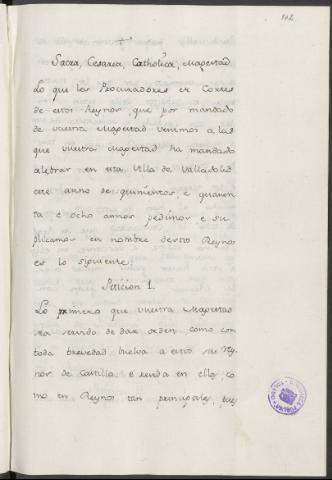 102
+
Sacra, Cesarea, Catholica, Magestad
Lo que los Procuradores de Cortes
de estos Reynos, que por mandado
de vuestra Magestad venimos a las
que vuestra Magestad ha mandado
celebrar en esta Villa de Valladolid
este anno de quinientos, e quaren
ta e ocho annos pedimos e su
plicamos en nombre destos Reynos
es lo siguiente:
Peticion 1.
Lo primero que vuestra Magestad
sea servido de dar orden como con
toda brevedad buelva a estos sus Rey
nos de Castilla e resida en ellos, co
mo en Reynos tan principales, pues